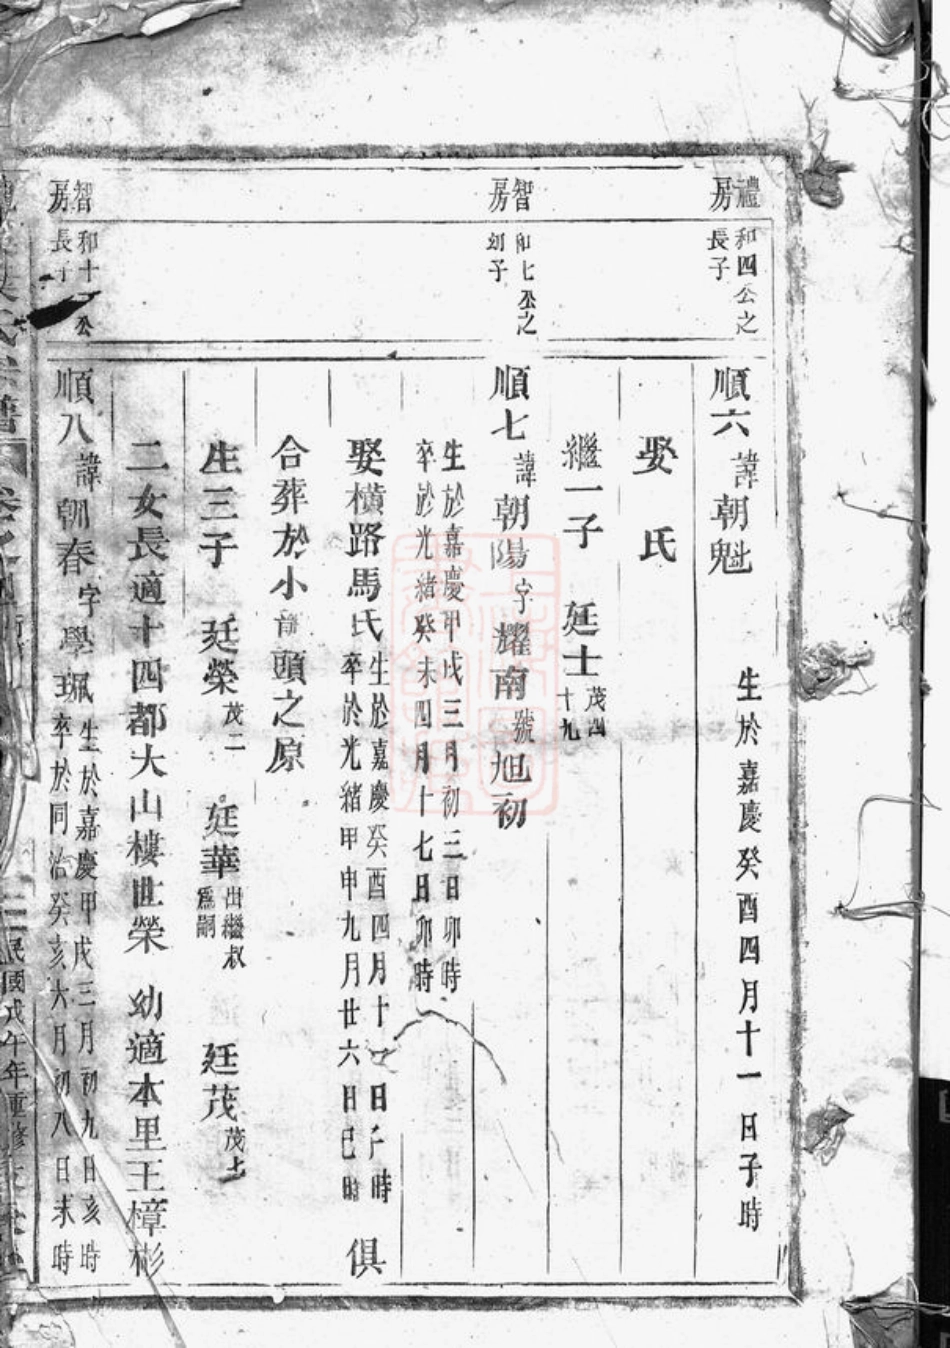 禮房
和四公之
長子
順六 諱朝魁
生於嘉慶癸酉四月十一日子時
娶 氏
繼一子 廷士
茂四
十九
智房
和七公之
幼子
順七 諱朝陽 字耀南 號旭初
生於嘉慶甲戌三月初三日卯時
卒於光緒癸未四月十七日卯時
娶橫路馬氏
生於嘉慶癸酉四月十日午時
卒於光緒甲申九月廿六日巳時
俱
合葬於小 頭之原
生三子 廷榮 茂一 廷華
出繼叔
爲嗣
廷茂 茂七
二女長適十四都大山樓世榮 幼適本里王樟彬
智房
和十 公
長子
順八 諱朝春 字學珮
生於嘉慶甲戌三月初九日亥時
卒於同治癸亥六月初八日未時
氏宗譜 卷之
民國戊午年重修